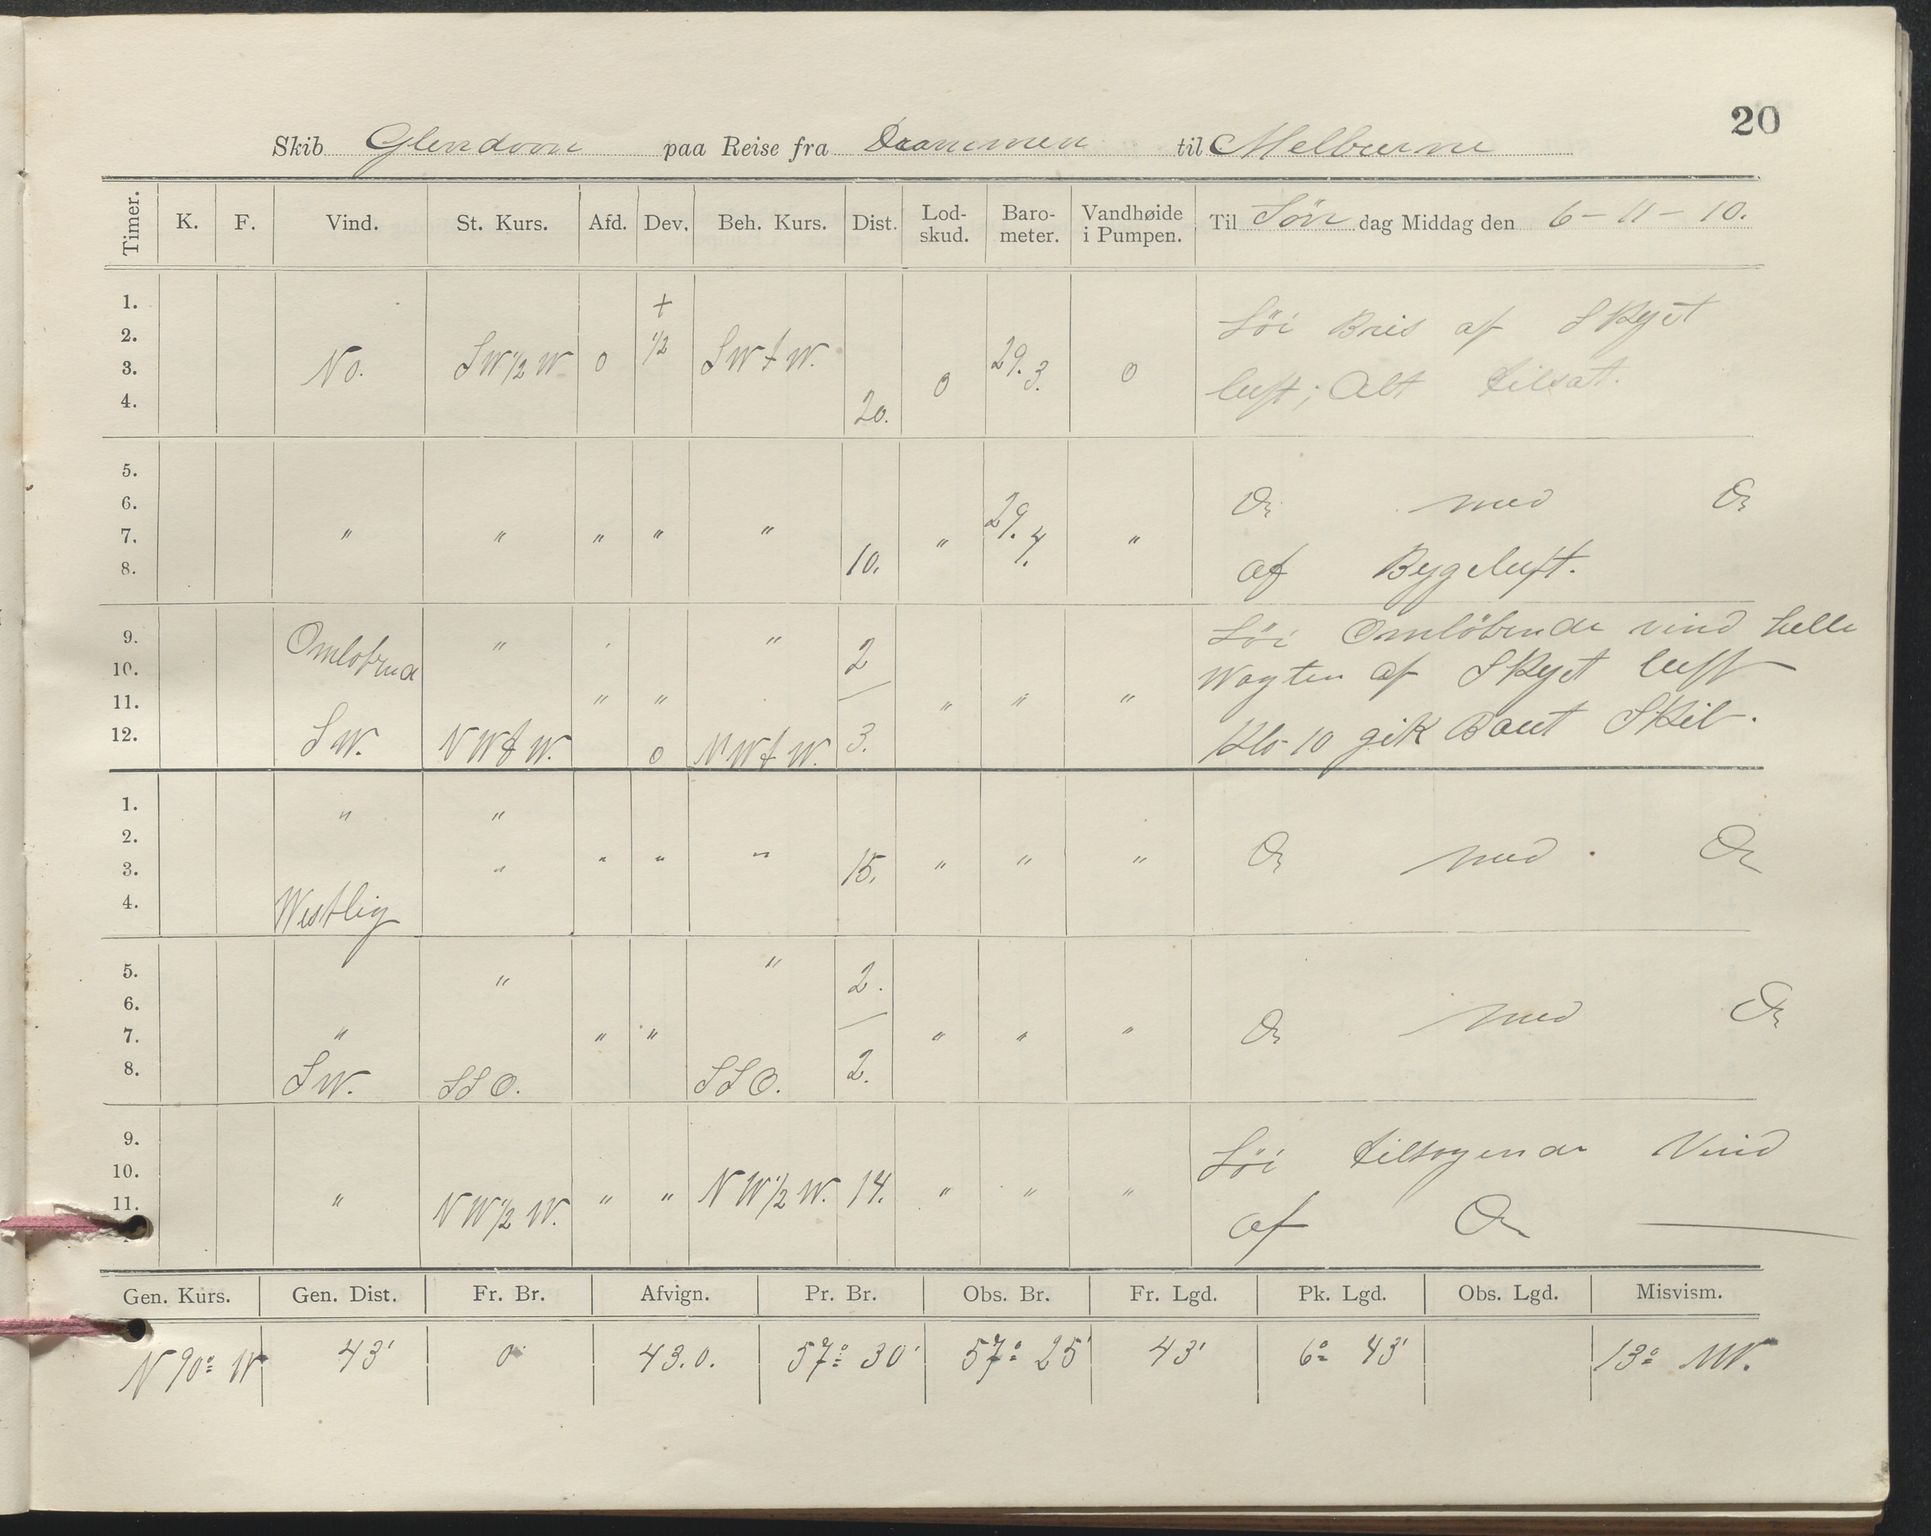 20
Skib Glendoon paa Reise fra Drammen til Melburne
Timer. K. F. Vind. St. Kurs. Afd. Dev. Beh. Kurs. Dist. Lod-skud. Baro-meter. Vandhøide i Pumpen. Til Søn dag Middag den 6-11-10.
1. + Løi Bris af Skyet
2. ½
3. No. SW½W. 0 SWtW. 0 29.3. 0 luft; Alt tilsat.
4. 20.
5.
6. Do med Do
7. " " " " " " 29.4. "
8. 10. af Bygeluft.
9. Omløbende " " " 2 Løi Omløbende vind helle
10. Wagten af Skyet luft
11. " " " " "
12. SW. NWtW. 0 NWtW. 3. Klo 10 gik Bout Skib.
1. " "
2.
3. " " " " 15. " " " Do med Do
4. Westlig
5. " " 2.
6.
7. " " " " " " Do med Do
8. SW. SSO. SSO. 2.
9. Løi tiltagende Vind
10.
11. " NW½W. " " NW½W. 14. " " " af Do
Gen. Kurs. Gen. Dist. Fr. Br. Afvign. Pr. Br. Obs. Br. Fr. Lgd. Pk. Lgd. Obs. Lgd. Misvism.
N 90° W 43' 0 43.0. 57° 30' 57° 25' 43' 6° 43' 13°